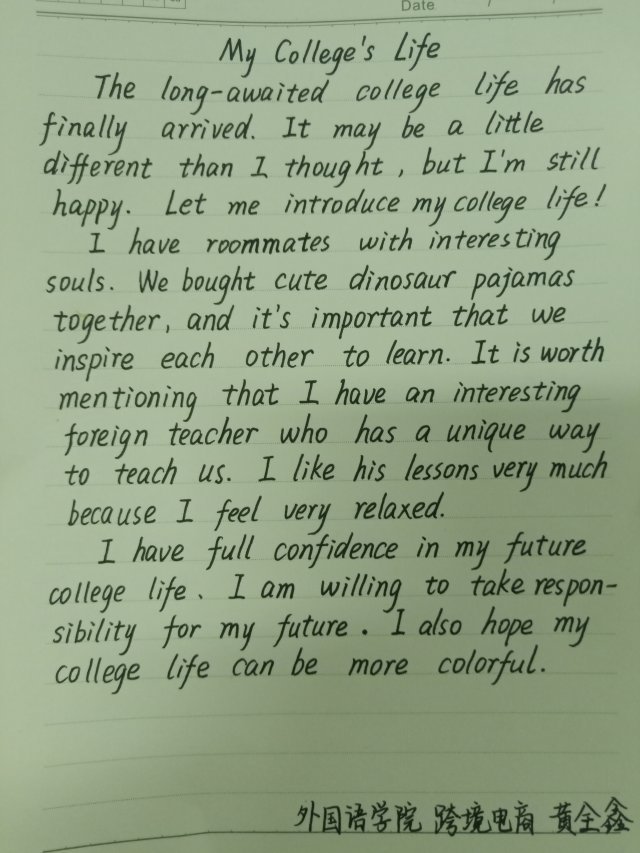 Date / /
My College's Life
The long-awaited college life has
finally arrived. It may be a little
different than I thought, but I'm still
happy. Let me introduce my college life!
I have roommates with interesting
souls. We bought cute dinosaur pajamas
together, and it's important that we
inspire each other to learn. It is worth
mentioning that I have an interesting
foreign teacher who has a unique way
to teach us. I like his lessons very much
because I feel very relaxed.
I have full confidence in my future
college life. I am willing to take respon-
sibility for my future. I also hope my
college life can be more colorful.
外国语学院 跨境电商 黄全鑫